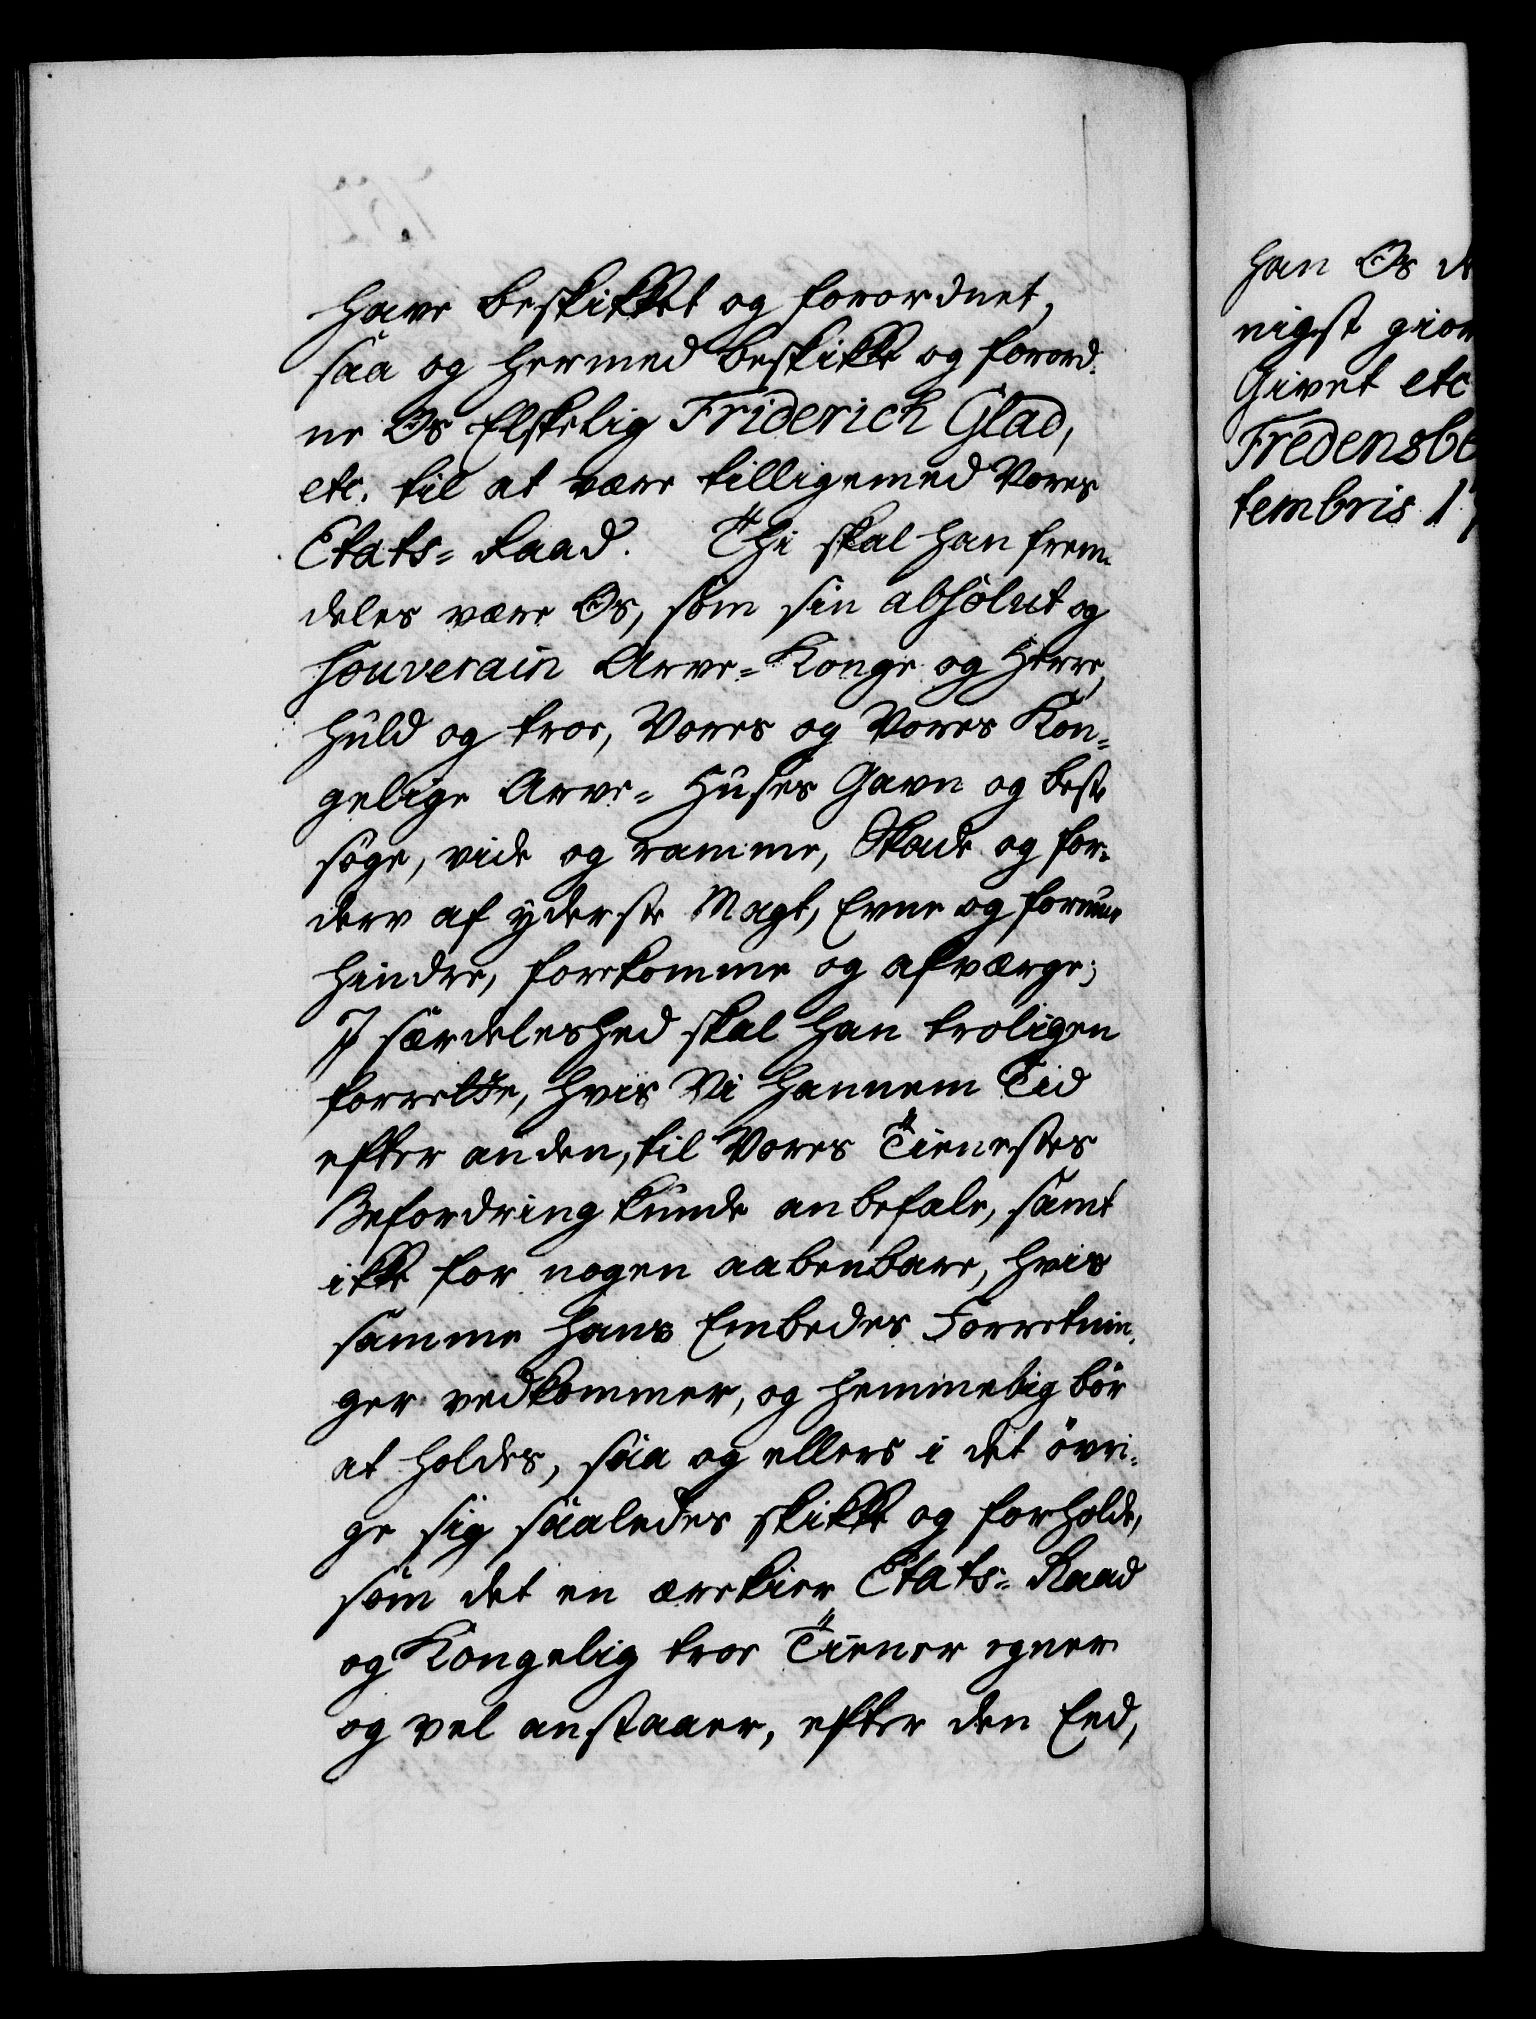 have beskikket og forordnet,
saa og hermed beskikke og forord-
ne Os Elskelig Friderich Glad,
etc. til at være tilligemed Vores
Etats-Raad. Thi skal han frem-
deles være Os, som sin absolut og
souverain Arve-Konge og Herre,
huld og troe, Vores og Vores Kon-
gelige Arve-Huses Gavn og beste
søge, vide og ramme, Skade og for-
derv af yderste Magt, Evne og formue
hindre, forekomme og afværge;
J særdeleshed skal han troligen
forrette, hvis Vi hannem Tid
efter anden, til Vores Tienestes
Befordring kunde anbefale, samt
ikke for nogen aabenbare, hvis
samme hans Embedes Forretnin-
ger vedkommer, og hemmelig bör
at holdes, saa og ellers i det övri-
ge sig saaledes skikke og forholde,
som det en ærekier Etats-Raad
og Kongelig troe Tiener egner
og vel anstaaer, efter den Eed,
han Os
nigst
Givet etc
Fredensb
tembris 17